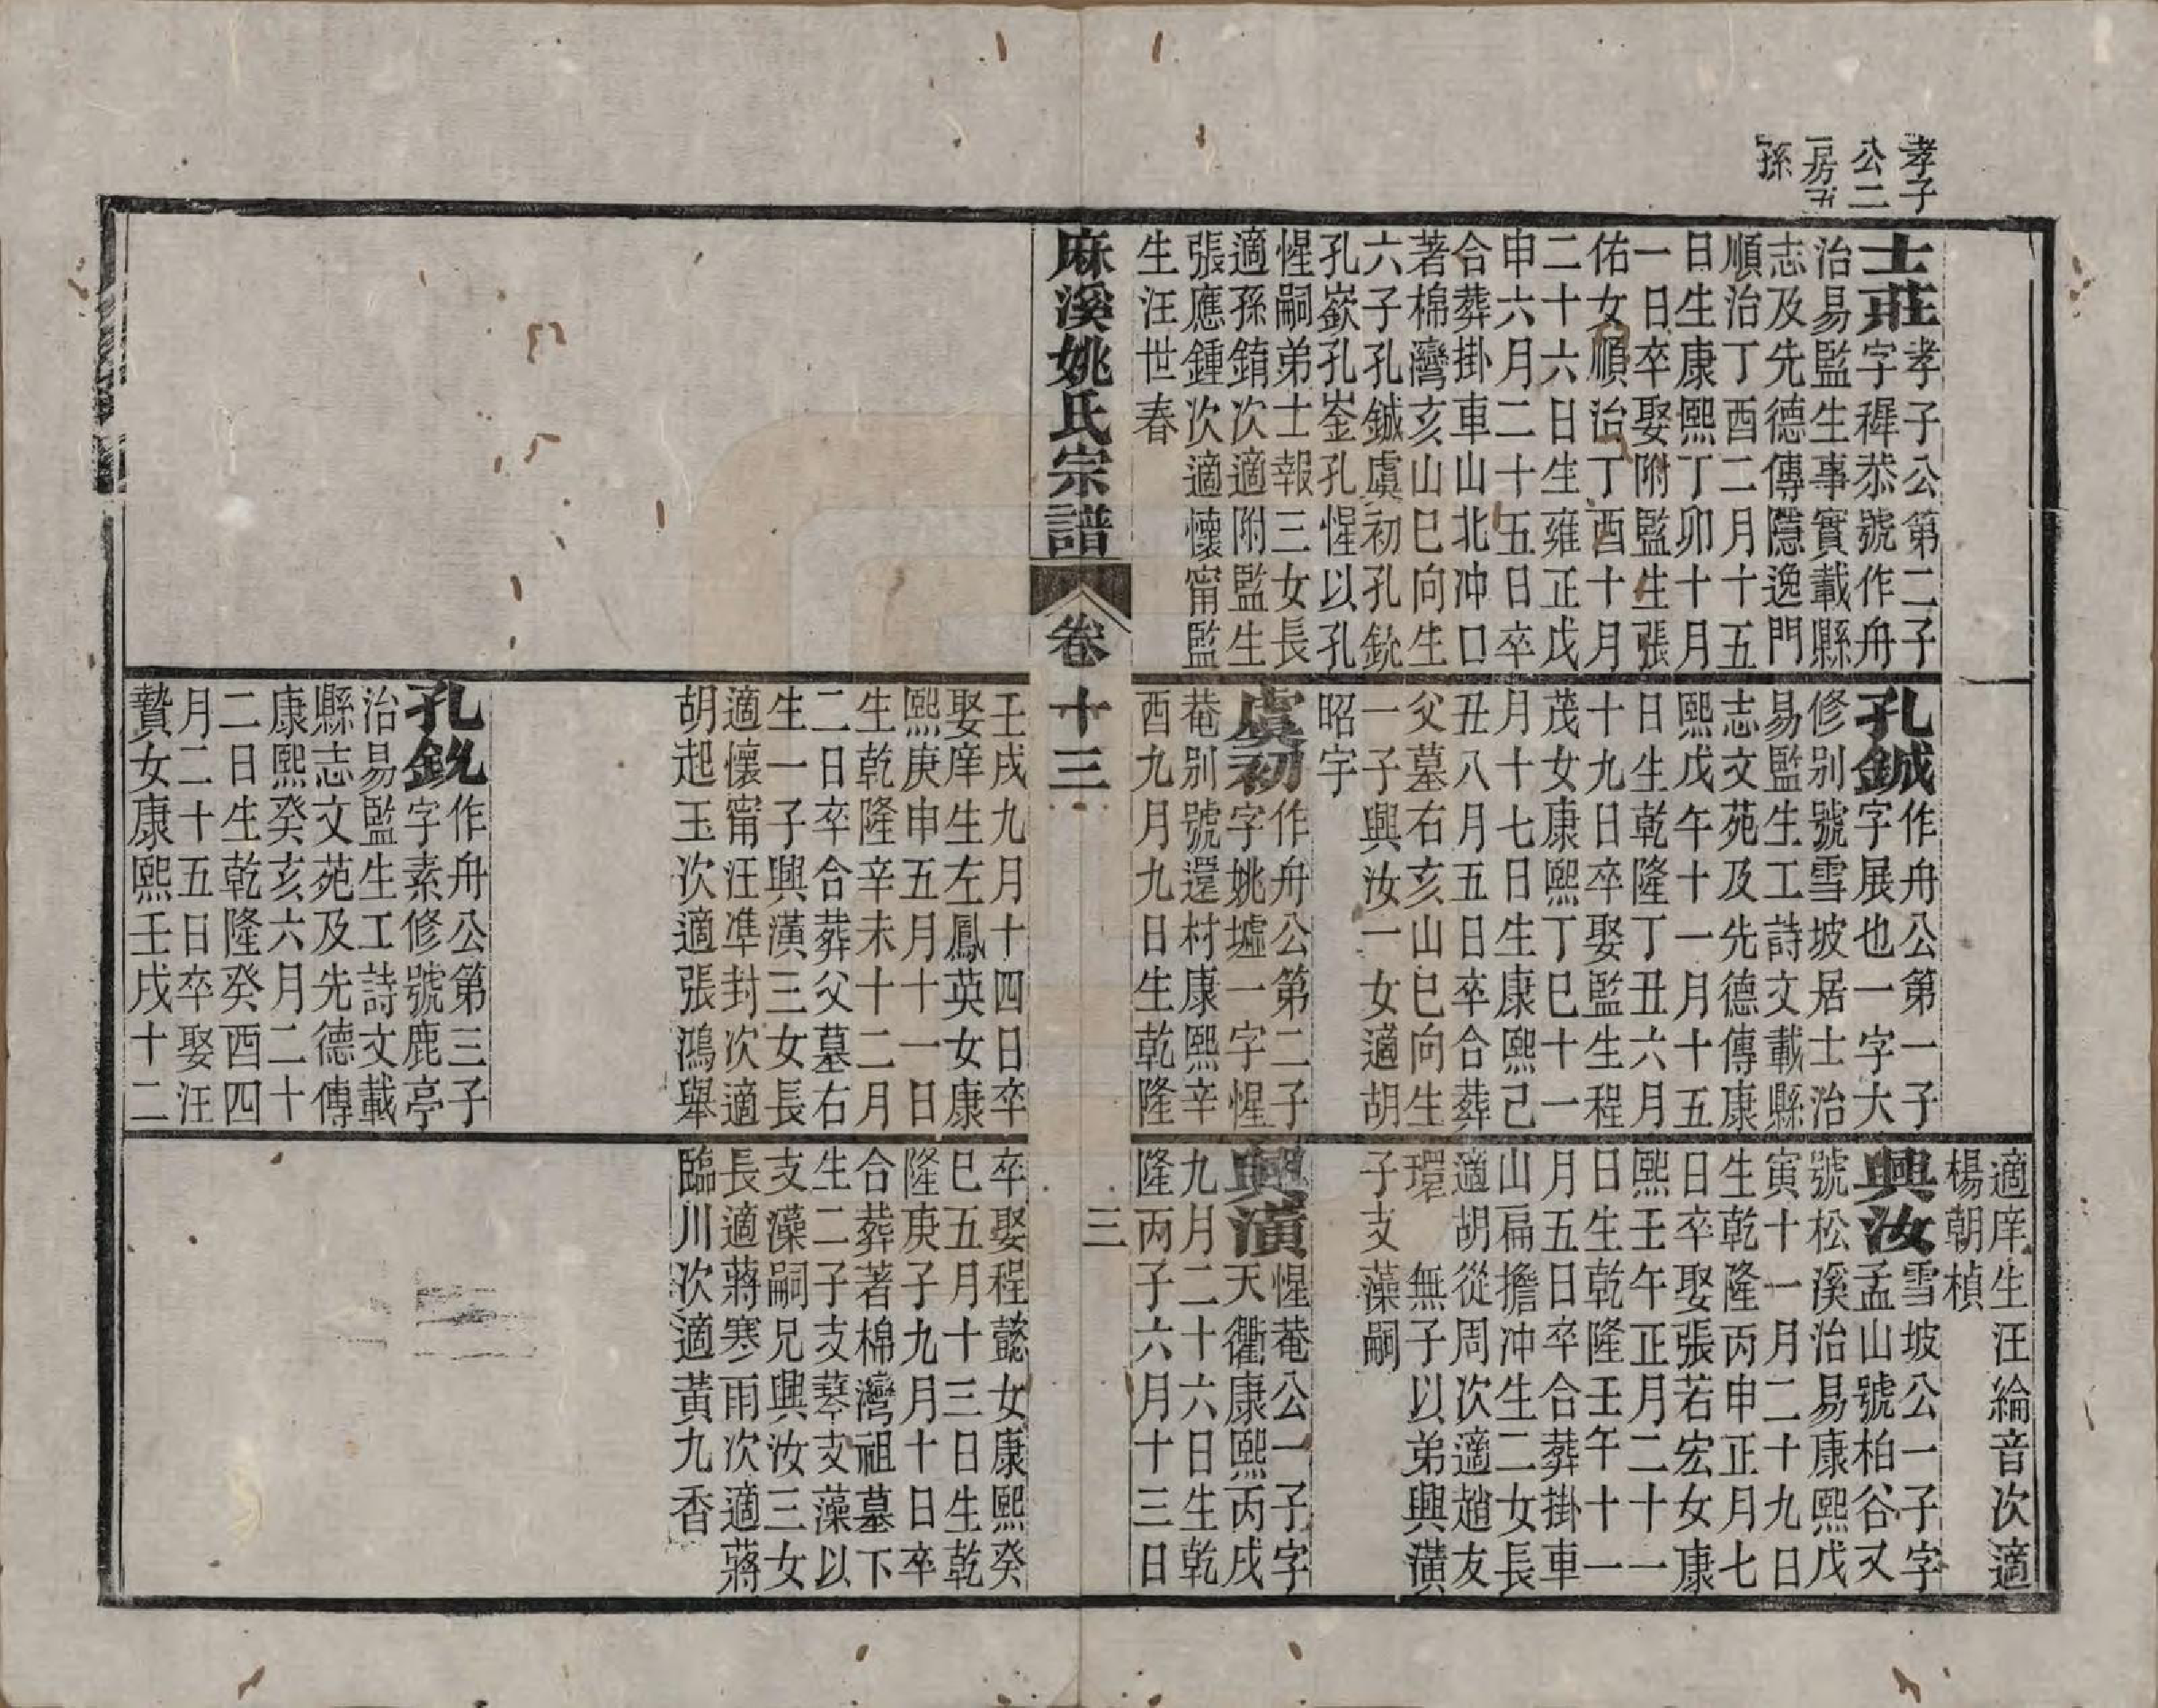 孝子
公二
房五
孫
士莊孝子公第二子
字穉恭號作舟
治易監生事實載縣
志及先德傳隱逸門
順治丁酉二月十五
日生康熙丁卯十月
一日卒娶附監生張
佑女順治丁酉十月
二十六日生雍正戊
申六月二十五日卒
合葬掛車山北冲口
著棉灣亥山巳向生
六子孔鋮虞初孔鈗
孔嶔孔崟孔惺以孔
惺嗣弟士報三女長
適孫錥次適附監生
張應鍾次適懷甯監
生汪世春
孔鋮作舟公第一子
字展也一字大
修別號雪坡居士治
易監生工詩文載縣
志文苑及先德傳康
熙戊午十一月十五
日生乾隆丁丑六月
十九日卒娶監生程
茂女康熙丁巳十一
月十七日生康熙己
丑八月五日卒合葬
父墓右亥山巳向生
一子興汝一女適胡
昭宇
虞初作舟公第二子
字姚墟一字惺
菴別號還材康熙辛
酉九月九日生乾隆
適庠生汪綸音次適
楊朝楨
興汝雪坡公一子字
孟山號柏谷又
號松溪治易康熙戊
寅十一月二十九日
生乾隆丙申正月七
日卒娶張若宏女康
熙壬午正月二十一
日生乾隆壬午十一
月五日卒合葬掛車
山扁擔冲生二女長
適胡從周次適趙友
環 無子以弟興潢
子支藻嗣
興潢惺菴公一子字
天衢康熙丙戌
九月二十六日生乾
隆丙子六月十三日
麻溪姚氏宗譜 卷十三 三
壬戌九月十四日卒
娶庠生左鳳英女康
熙庚申五月十一日
生乾隆辛未十二月
二日卒合葬父墓右
生一子興潢三女長
適懷甯汪準封次適
胡起玉次適張鴻舉
孔鈗作舟公第三子
字素修號鹿亭
治易監生工詩文載
縣志文苑及先德傳
康熙癸亥六月二十
二日生乾隆癸酉四
月二十五日卒娶汪
贄女康熙壬戌十二
卒娶程懿女康熙癸
巳五月十三日生乾
隆庚子九月十日卒
合葬著棉灣祖墓下
生二子支蓽支藻以
支藻嗣兄興汝三女
長適蔣寒雨次適蔣
臨川次適黃九香